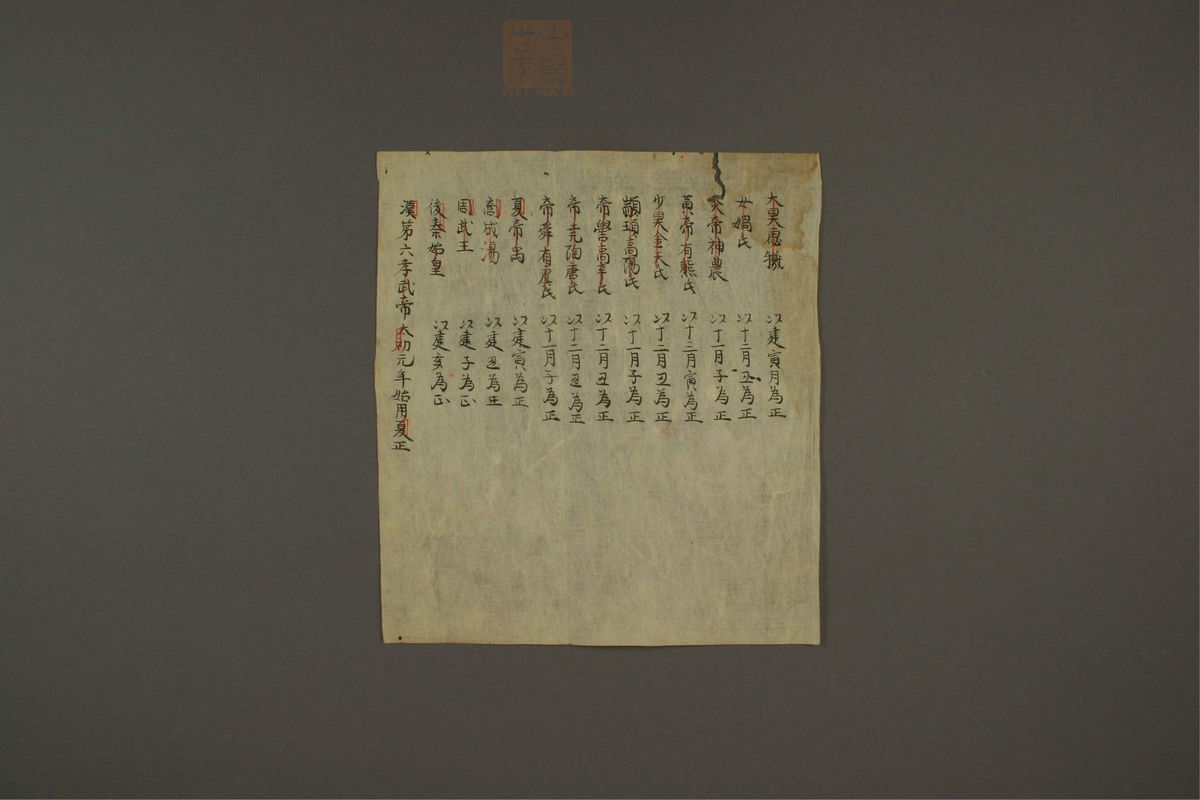 大昊宓犧 以建寅月為正
女媧氏 以十二月丑為正
炎帝神農 以十一月子為正
黄帝有熊氏 以十三月寅為正
少昊金天氏 以十二月丑為正
顓頊高陽氏 以十一月子為正
帝嚳高辛氏 以十二月丑為正
帝堯陶唐氏 以十二月丑為正
帝舜有虞氏 以十一月子為正
夏帝禹 以建寅為正
成湯 以建丑為正
周武王 以建子為正
後秦始皇 以建亥為正
漢第六孝武帝太初元年始用夏正